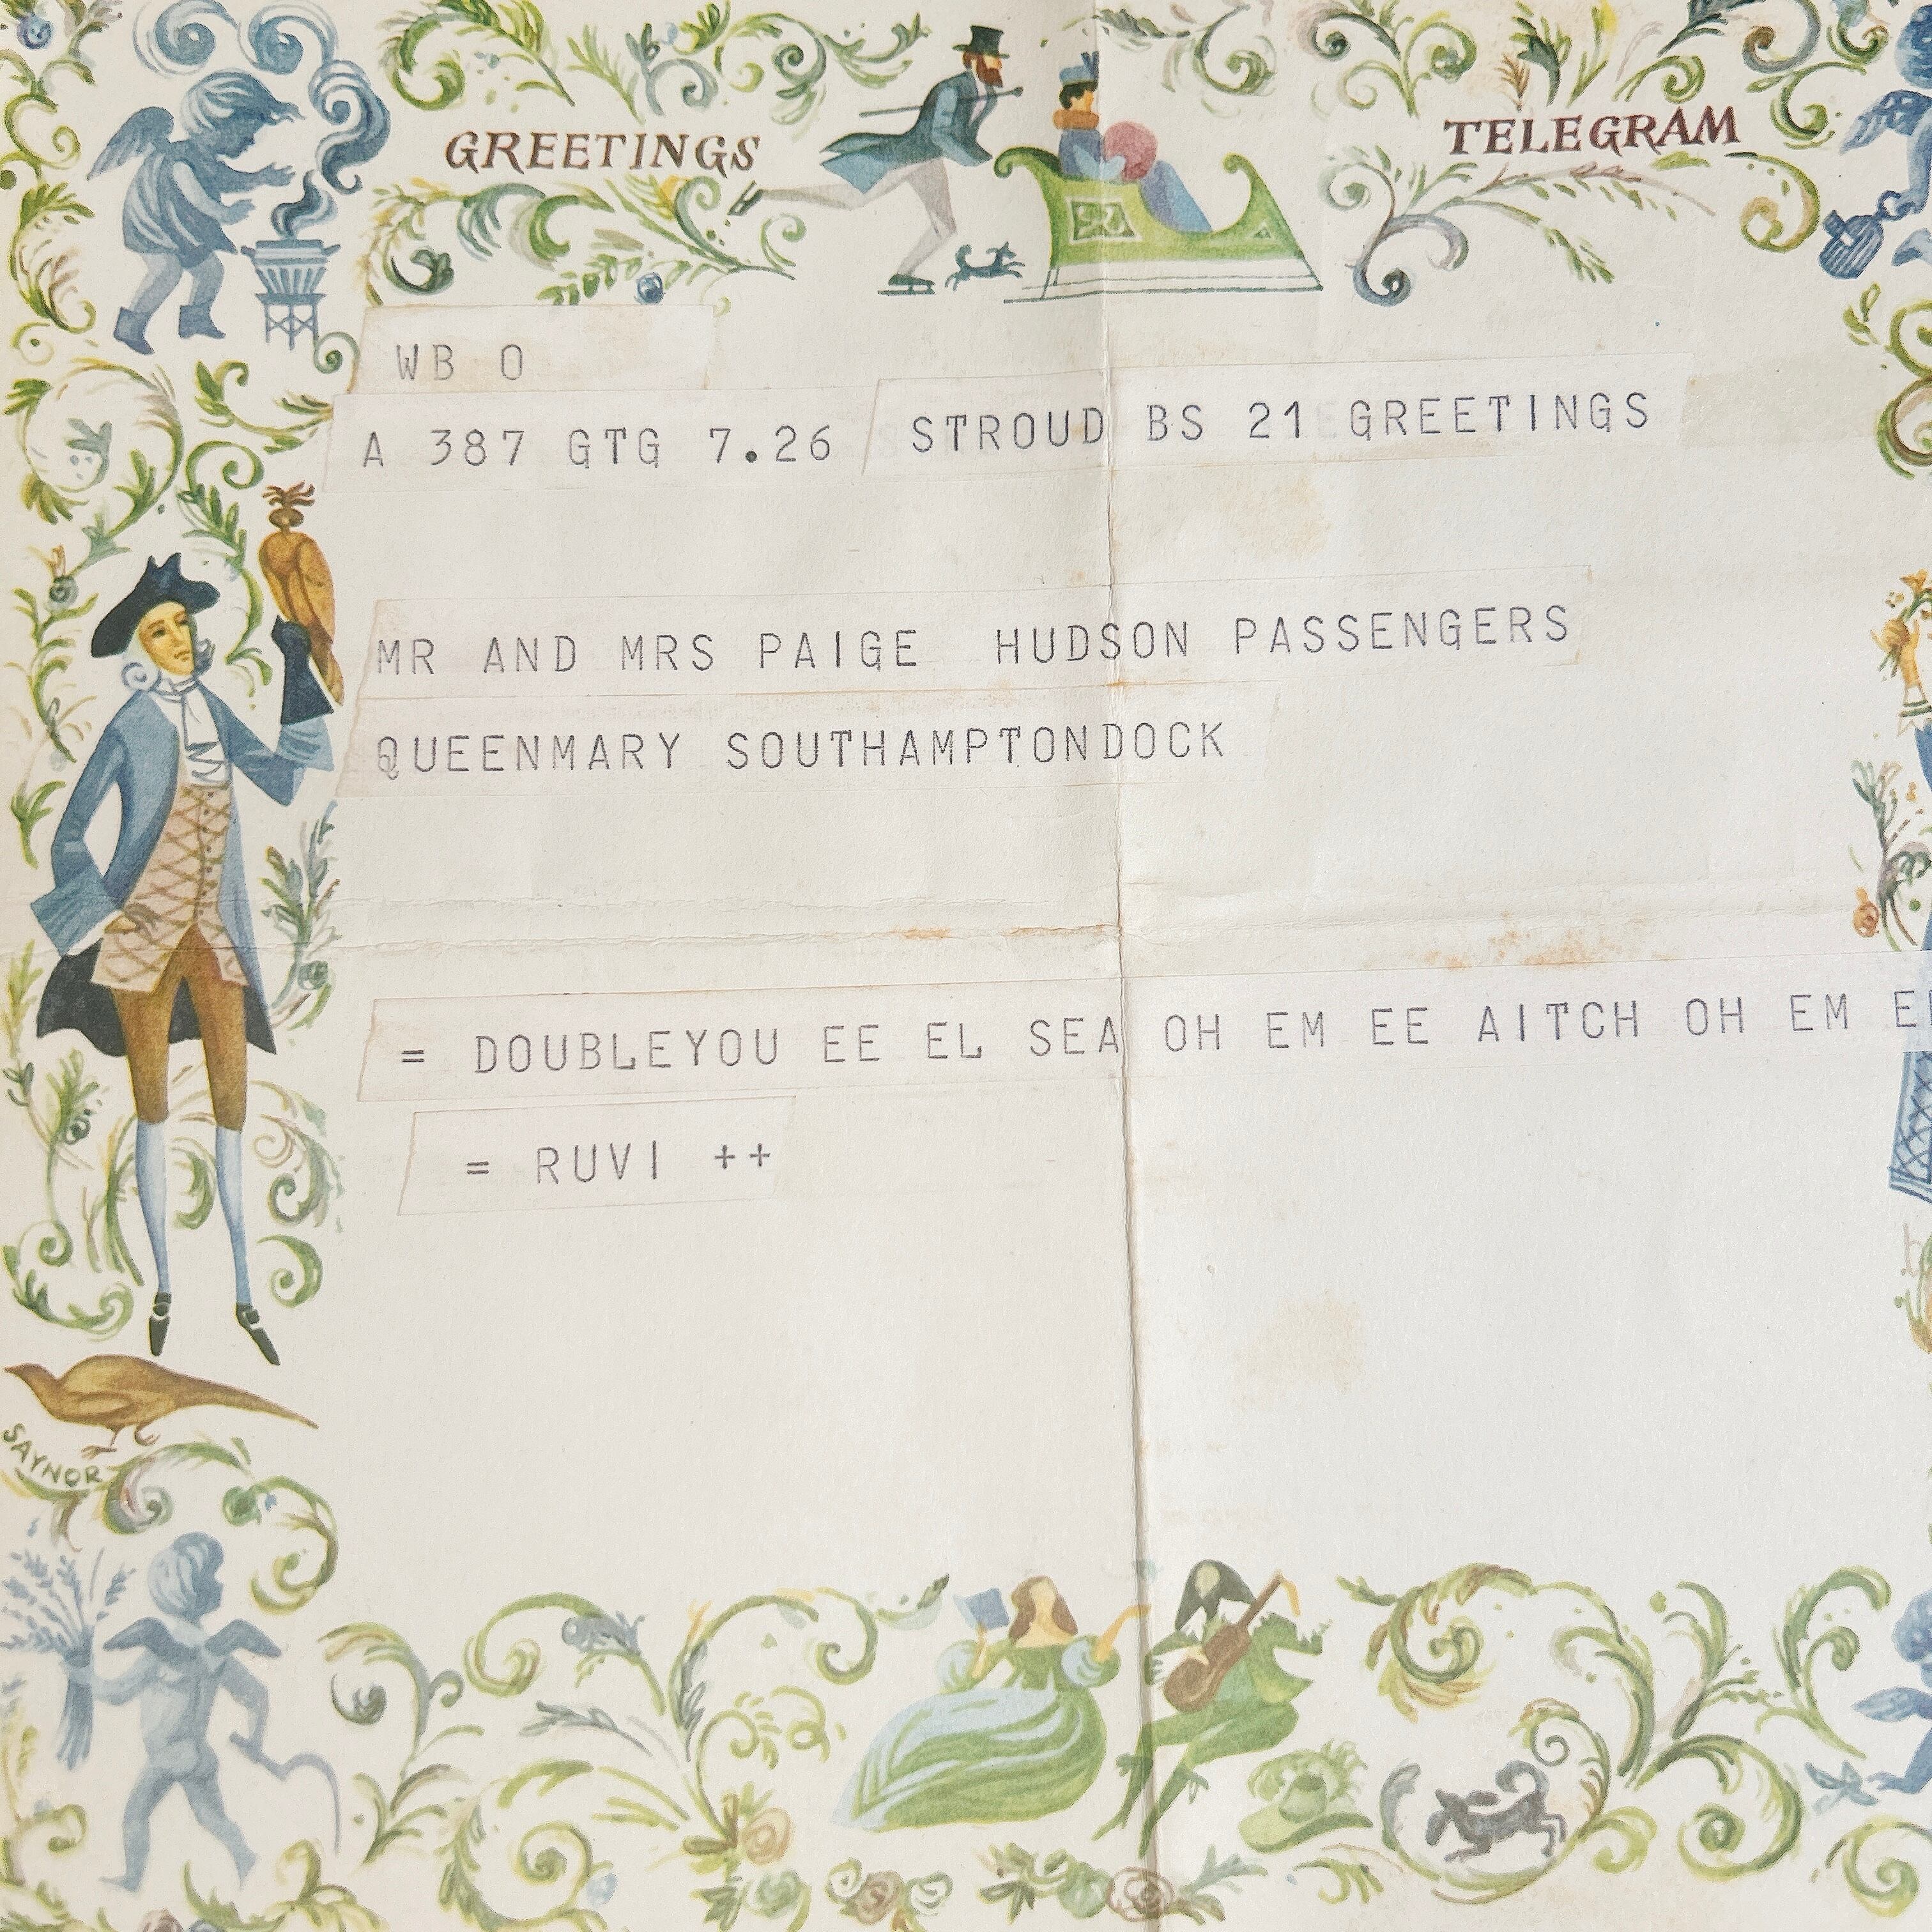 GREETINGS TELEGRAM
WB O
A 387 GTG 7.26 STROUD BS 21 GREETINGS
MR AND MRS PAIGE HUDSON PASSENGERS
QUEENMARY SOUTHAMPTONDOCK
= DOUBLEYOU EE EL SEA OH EM EE AITCH OH EM
= RUVI ++
SAYNOR